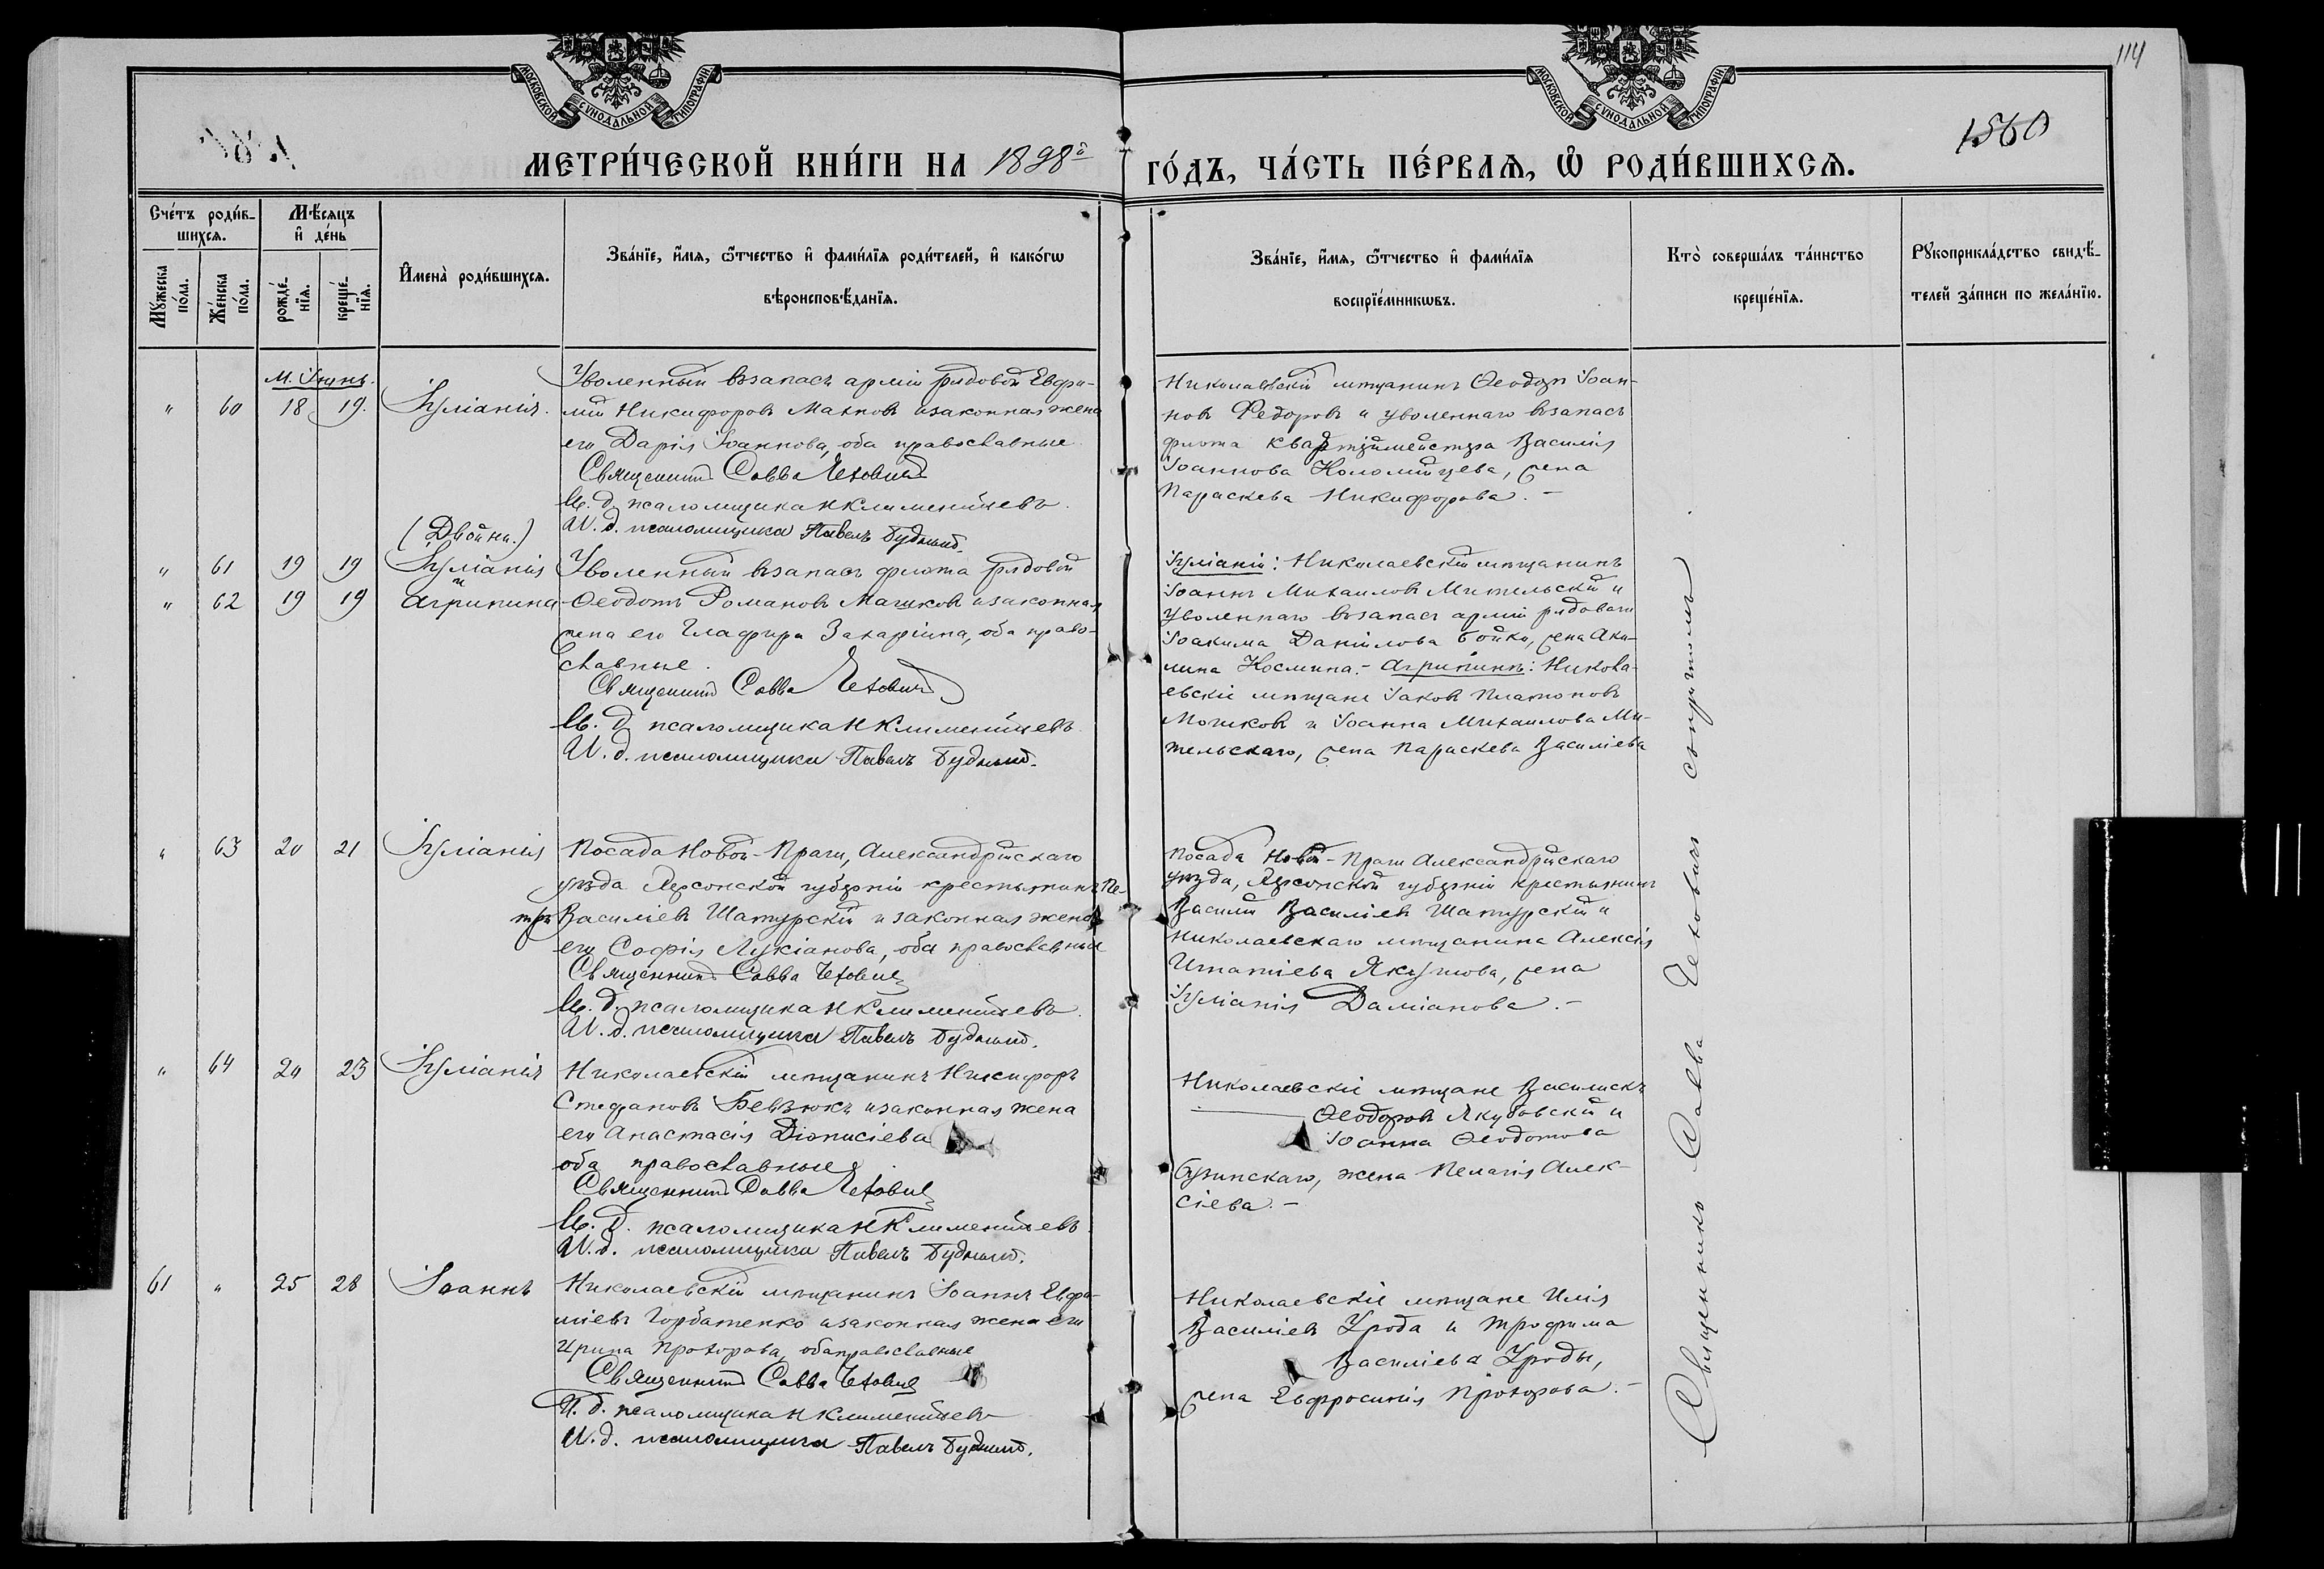 114
1560
МОСКОВСКОЙ СѴНОДАЛЬНОЙ ТИПОГРАФІИ
МОСКОВСКОЙ СѴНОДАЛЬНОЙ ТИПОГРАФІИ
МЕТРИ́ЧЕСКОЙ КНИ́ГИ НА 1898й ГО́ДЪ, ЧА́СТЬ ПЕ́РВАЯ, Ѡ РОДИ́ВШИХСЯ.
Сче́тъ роди́в-
шихся.
Мѣ́сяцъ
и҆ де́нь
Му́жеска
по́ла.
Же́нска
по́ла.
рожде́-
нїя.
креще́-
нїя.
И҆мена̀ роди́вшихся.
Зва́нїе, и҆́мя, ѻ҆́тчество и҆ фами́лїя роди́телей, и҆ како́гѡ
вѣроисповѣ́данїя.
Зва́нїе, и҆́мя, ѻ҆́тчество и҆ фами́лїя
воспрїе́мникѡвъ.
Кто̀ соверша́лъ та́инство
креще́нїя.
Рꙋкоприкла́дство свидѣ́-
телей за́писи по жела́нїю.
М. Іюнь.
" 60 18 19. Іуліанія.
Уволенный въ запасъ арміи рядовой Евфи-
мій Никифоровъ Махновъ и законная жена
его Дарія Іоаннова, оба православные
Священникъ Савва Чехович
И. д. псаломщика Н Климентьевъ
И. д. псаломщика Павелъ Будный.
Николаевскій мѣщанинъ Ѳеодоръ Іоан-
новъ Федоровъ и уволеннаго въ запасъ
флота квартирмейстера Василія
Іоаннова Коломійцева, жена
Параскева Никифорова. –
(Двойни.)
" 61 19 19 Іуліанія
и
" 62 19 19 Агрипина
Уволенный въ запасъ флота рядовой
Ѳеодотъ Романовъ Машковъ и законная
жена его Гл​афира Захаріина, оба право-
славные.
Священникъ Савва Чехович
И. д. псаломщика Н Климентьевъ
И. д. псаломщика Павелъ Будный.
Іуліаніи: Николаевскій мѣщанинъ
Іоаннъ Михаиловъ Мительскій и
уволеннаго въ запасъ арміи рядоваго
Іоакима Даніилова Бойко, жена Аку-
лина Космина. – Агрипины: Никола-
евскіе мѣщане Іаковъ Платоновъ
Мошковъ и Іоанна Михаилова Ми-
тельскаго, жена Параскева Василіева
" 63 20 21 Іуліанія
Посада Новой-Праги, Александрійскаго
уѣзда Херсонской губерніи крестьянинъ Пе-
тръ Василіевъ Шатурскій и законная жена
его Софія Лукіанова, оба православные
Священникъ Савва Чехович
И. д. псаломщика Н Климентьевъ
И. д. псаломщика Павелъ Будный.
Посада Новой-Праги Александрійскаго
уѣзда, Херсонской губерніи крестьянинъ
Василій Василіевъ Шатурскій и
Николаевскаго мѣщанина Алексія
Игнатіева Якунова, жена
Іуліанія Даміанова. –
" 64 20 23 Іуліанія
Николаевскій мѣщанинъ Никифоръ
Стефановъ Бевзюкъ и законная жена
его Анастасія Діонисіева
оба православные
Священникъ Савва Чехович
И. д. псаломщика Н Климентьевъ
И. д. псаломщика Павелъ Будный.
Николаевскіе мѣщане Василискъ
Ѳеодоровъ Якубовскій и
Іоанна Ѳеодотова
Бужинскаго, жена Пелагія Алек-
сіева. –
61 " 25 28 Іоаннъ
Николаевскій мѣщанинъ Іоаннъ Евфи-
міевъ Горбатенко и законная жена его
Ирина Прохорова, оба православные
Священникъ Савва Чехович
И. д. псаломщика Н Климентьевъ
И. д. псаломщика Павелъ Будный.
Николаевскіе мѣщане Илія
Василіевъ Урода и Трофима
Василіева Уроды,
жена Евфросинія Прохорова. –
Священникъ Савва Чеховичъ